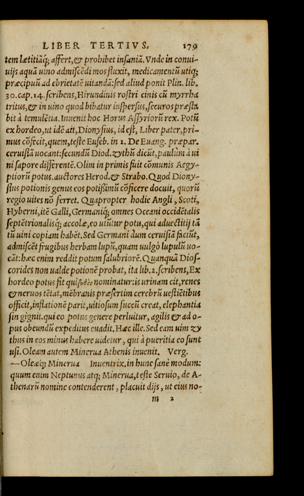 LIBER TERTIVS. 179
tem lætitiáq; affert, & prohibet insaniā. Vnde in conui-
uijs aquā uino admiscēdi mos fluxit, medicamentū utiq;
præcipuū ad ebrietatē uitandā: sed aliud ponit Plin. lib.
30. cap. 14. scribens, Hirundinis rostri cinis cū myrrha
tritus, & in uino quod bibatur inspersus, securos præsta
bit à temulētia. Inuenit hoc Horus Assyriorū rex. Potū
ex hordeo, ut idē ait, Dionysius, id est, Liber pater, pri-
mus cōfecit, quem, teste Euseb. in 2. De Euang. præpar.
ceruisiā uocant: secundū Diod. zythū dicūt, paulim à ui
ni sapore differentē. Olim in primis fuit cōmunis Aegy-
ptiorū potus. auctores Herod. & Strabo. Quod Diony-
sius potionis genus eos potissimū cōficere docuit, quorū
regio uites nō ferret. Quapropter hodie Angli, Scoti,
Hyberni, itē Galli, Germaniq́; omnes Oceani occidētalis
septētrionalisq́; accolæ, eo utūtur potu, qui aduectitij tā
tū uini copiam habēt. Sed Germani dum ceruisiā faciūt,
admiscēt frugibus herbam lupū, quam uulgò lupulū uo-
cāt: hæc enim reddit potum salubriorē. Quanquā Dios-
corides non ualde potionē probat, ita lib. 2. scribens, Ex
hordeo potus fit qui nominatur: is urinam ciet, renes
& neruos tētat, mēbranis præsertim cerebrū uestiētibus
officit, inflationē parit, uitiosum succū creat, elephantia
sin gignit. qui eo potus genere perluitur, agilis & ad o-
pus obeundū expeditus euadit, Hæc ille. Sed eam uim zy
thus in eos minus habere uidetur, qui à pueritia eo sunt
usi. Oleam autem Minerua Athenis inuenit. Verg.
—Oleæq́; Minerua Inuentrix, in hunc sanè modum:
quum enim Neptunus atq; Minerua, teste Seruio, de A-
thenarū nomine contenderent, placuit dijs, ut eius no-
m 2